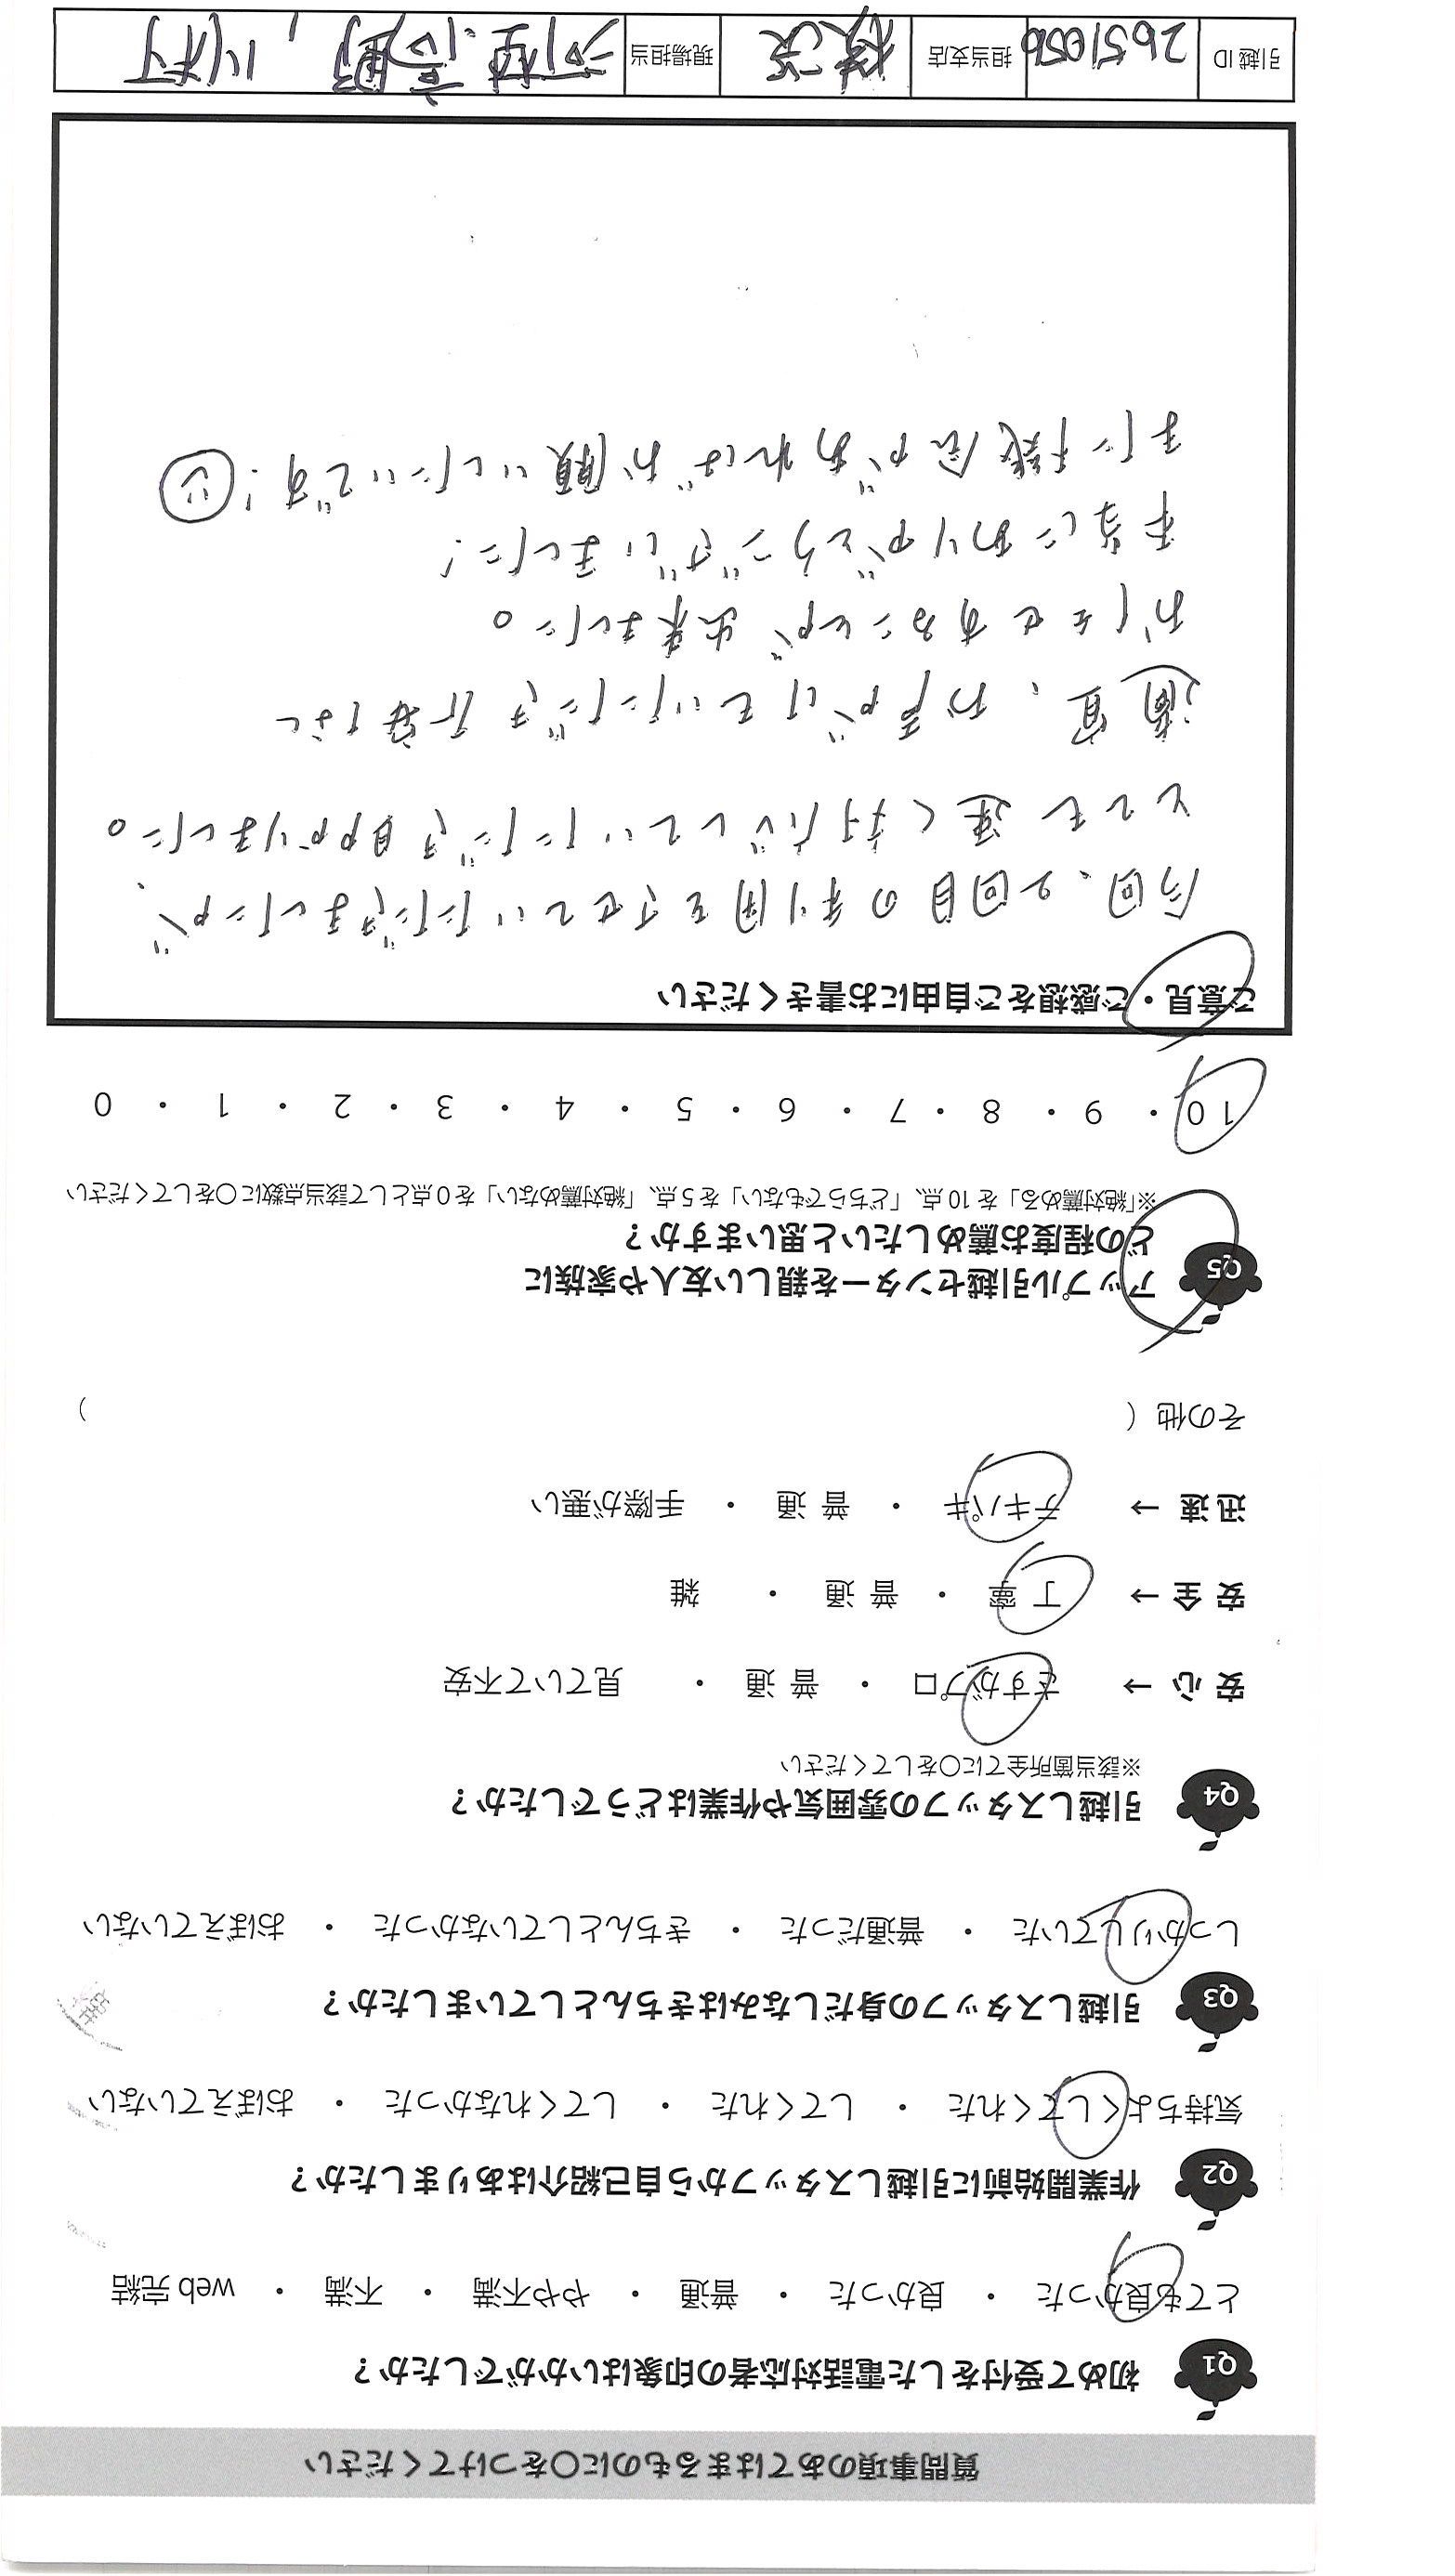 質問事項のあてはまるものに〇をつけてください
Q1 初めて受付をした電話対応者の印象はいかがでしたか？
とても良かった ・ 良かった ・ 普通 ・ やや不満 ・ 不満 ・ web 完結
Q2 作業開始前に引越しスタッフから自己紹介はありましたか？
気持ちよくしてくれた ・ してくれた ・ してくれなかった ・ おぼえていない
Q3 引越しスタッフの身だしなみはきちんとしていましたか？
しっかりしていた ・ 普通だった ・ きちんとしていなかった ・ おぼえていない
Q4 引越しスタッフの雰囲気や作業はどうでしたか？
※該当箇所全てに〇をしてください
安心 → さすがプロ ・ 普通 ・ 見ていて不安
安全 → 丁寧 ・ 普通 ・ 雑
迅速 → テキパキ ・ 普通 ・ 手際が悪い
その他（ ）
Q5 アップル引越センターを親しい友人や家族に
どの程度お薦めしたいと思いますか？
※「絶対薦める」を 10 点、「どちらでもない」を 5 点、「絶対薦めない」を 0 点として該当点数に〇をしてください
10 ・ 9 ・ 8 ・ 7 ・ 6 ・ 5 ・ 4 ・ 3 ・ 2 ・ 1 ・ 0
ご意見・ご感想をご自由にお書きください
今回、2回目の利用をさせていただきましたが、
とても速く対応していただき助かりました。
適宜、お声がけていただき不安なく
おまかせすることが出来ました。
本当にありがとうございました！
また機会があればお願いしたいです！
引越 ID 担当支店 横浜 現場担当